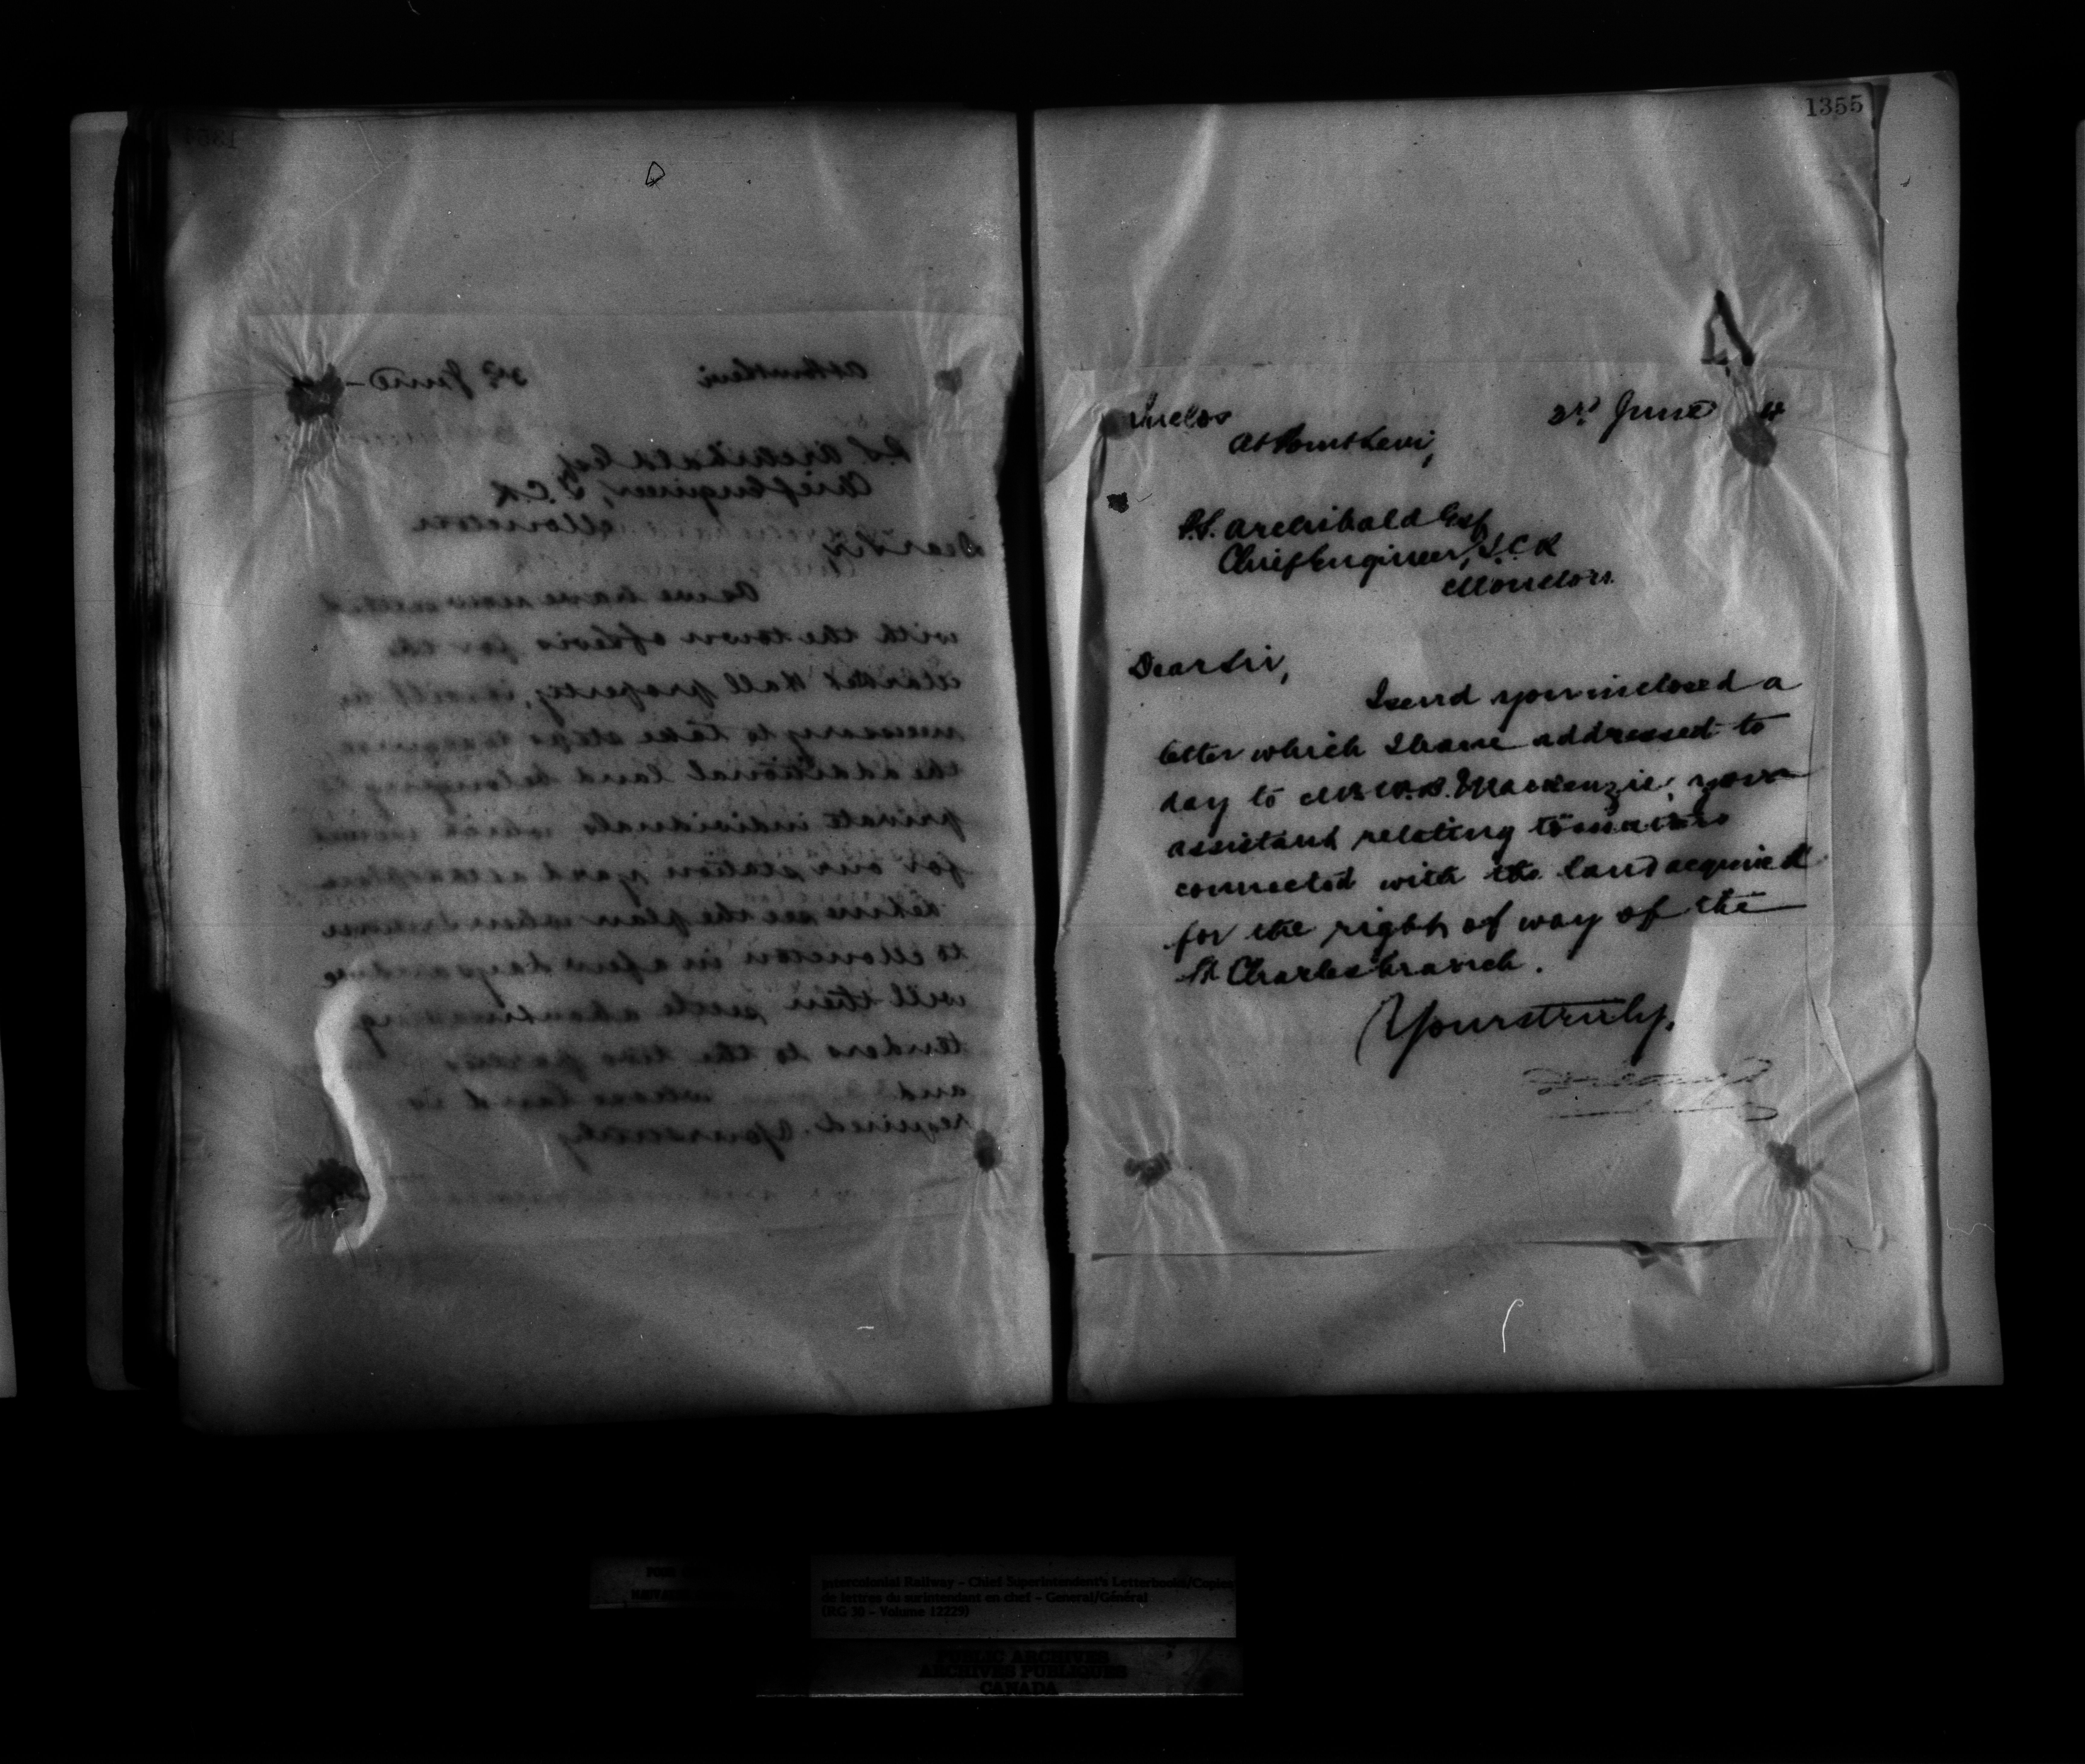 At Point Levi 3rd June
P.S. Archibald Esq
Chief Engineer, I.C.R
Moncton
Dear Sir
As we have now settled
with the town of Levis for the
Market Hall property, it will be
necessary to take steps to acquire
the additional land belonging to
private individuals which
for our station yard
see the plan when I return
to Moncton in a few days and we
will then settle about making
tenders to the
and land is
required. Yours truly
1355
Inclos 3rd June 4
At Point Levi,
P.S. Archibald Esq
Chief Engineer, I.C.R
Moncton.
Dear Sir,
I send you inclosed a
letter which I have addressed to
day to Mr W.B. Mackenzie, your
assistant relating to matters
connected with the land acquired
for the right of way of the
St Charles branch.
Yours truly,
Intercolonial Railway – Chief Superintendent's Letterbooks/Copies
de lettres du surintendant en chef – General/Général
(RG 30 – Volume 12229)
PUBLIC ARCHIVES
ARCHIVES PUBLIQUES
CANADA